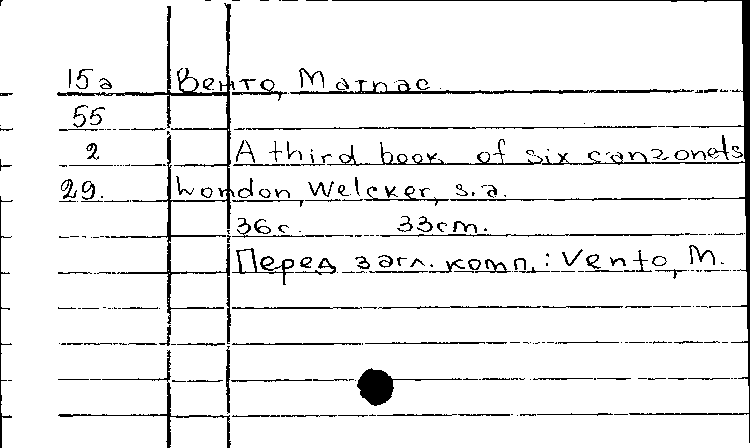 15а Венто, Матиас
55
2 A third book of six canzonets
29. London, Welcker, s.a.
36с. 33cm.
Перед загл. комп.: Vento, M.